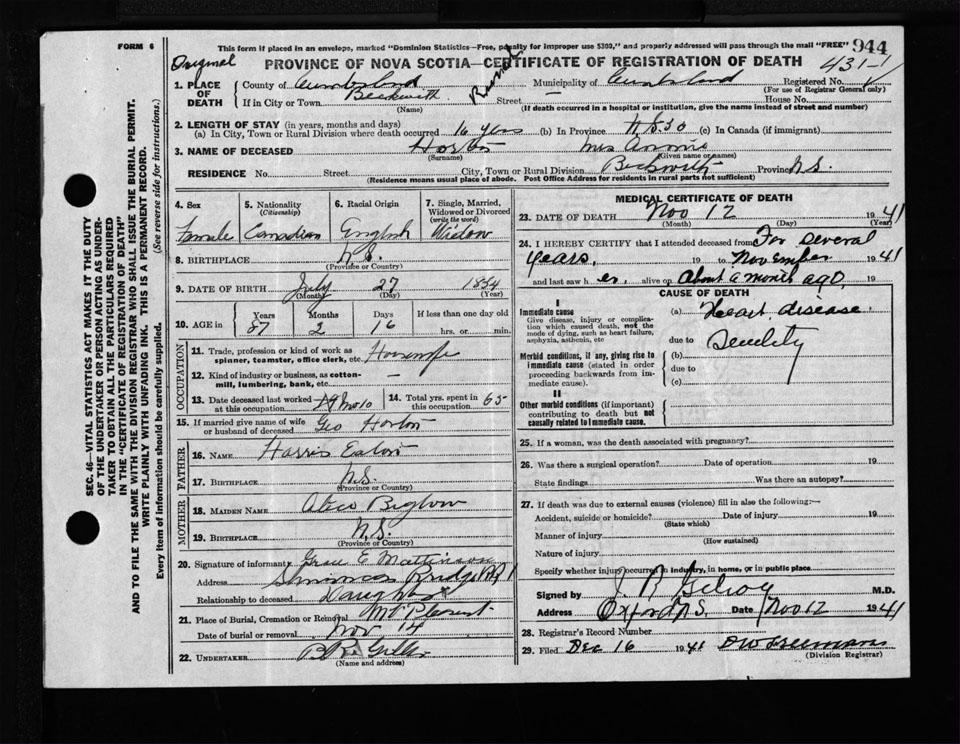 FORM 6
This form if placed in an envelope, marked "Dominion Statistics—Free, penalty for improper use $300," and properly addressed will pass through the mail "FREE" 944
Original
PROVINCE OF NOVA SCOTIA—CERTIFICATE OF REGISTRATION OF DEATH 431-1
1. PLACE OF DEATH County of Cumberland Rural Municipality of Cumberland Registered No.
(For use of Registrar General only)
If in City or Town Beckwith Street — House No.
(Name) (If death occurred in a hospital or institution, give the name instead of street and number)
2. LENGTH OF STAY (in years, months and days)
(a) In City, Town or Rural Division where death occurred 16 years (b) In Province (c) In Canada (if immigrant)
3. NAME OF DECEASED Horton Mrs Annie
(Surname) (Given name or names)
RESIDENCE No. Street City, Town or Rural Division Beckwith Province N.S.
(Residence means usual place of abode. Post Office Address for residents in rural parts not sufficient)
4. Sex 5. Nationality (Citizenship) 6. Racial Origin 7. Single, Married, Widowed or Divorced (write the word)
Female Canadian English Widow
8. BIRTHPLACE N.S.
(Province or Country)
9. DATE OF BIRTH July 27 1854
(Month) (Day) (Year)
10. AGE in Years Months Days If less than one day old
87 2 16 hrs. or min.
OCCUPATION
11. Trade, profession or kind of work as spinner, teamster, office clerk, etc. Housewife
12. Kind of industry or business, as cotton-mill, lumbering, bank, etc. —
13. Date deceased last worked at this occupation 14. Total yrs. spent in this occupation 65
15. If married give name of wife or husband of deceased Geo Horton
FATHER
16. NAME Harris Eaton
17. BIRTHPLACE N.S.
(Province or Country)
MOTHER
18. MAIDEN NAME Alice Biglow
19. BIRTHPLACE N.S.
(Province or Country)
20. Signature of informant Grace E Mattinson
Address Bridge
Relationship to deceased Daughter
21. Place of Burial, Cremation or Removal Mt Pleasant
Date of burial or removal Nov 14
22. UNDERTAKER
(Name and address)
MEDICAL CERTIFICATE OF DEATH
23. DATE OF DEATH Nov 12 1941
(Month) (Day) (Year)
24. I HEREBY CERTIFY that I attended deceased from For several
years, 19 to November 1941
and last saw h er, alive on About a month ago, 19
CAUSE OF DEATH
I
Immediate cause
Give disease, injury or complication which caused death, not the mode of dying, such as heart failure, asphyxia, asthenia, etc
(a) Heart disease.
due to Senility
Morbid conditions, if any, giving rise to immediate cause (stated in order proceeding backwards from immediate cause).
(b)
due to
(c)
II
Other morbid conditions (if important) contributing to death but not causally related to immediate cause.
25. If a woman, was the death associated with pregnancy?
26. Was there a surgical operation? Date of operation 19
State findings Was there an autopsy?
27. If death was due to external causes (violence) fill in also the following:—
Accident, suicide or homicide? Date of injury 19
(State which)
Manner of injury
(How sustained)
Nature of injury
Specify whether injury occurred in industry, in home, or in public place
Signed by J R Gilroy M.D.
Address Oxford N.S. Date Nov 12 1941
28. Registrar's Record Number
29. Filed Dec 16 1941
(Division Registrar)
SEC. 46—VITAL STATISTICS ACT MAKES IT THE DUTY
OF THE UNDERTAKER OR PERSON ACTING AS UNDER-
TAKER TO OBTAIN ALL THE PARTICULARS REQUIRED
IN THE "CERTIFICATE OF REGISTRATION OF DEATH"
AND TO FILE THE SAME WITH THE DIVISION REGISTRAR WHO SHALL ISSUE THE BURIAL PERMIT.
WRITE PLAINLY WITH UNFADING INK. THIS IS A PERMANENT RECORD.
Every item of information should be carefully supplied. (See reverse side for instructions).